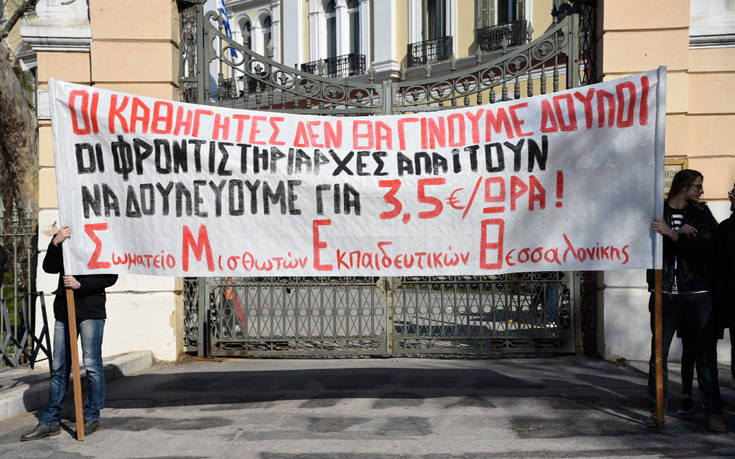 ΟΙ ΚΑΘΗΓΗΤΕΣ ΔΕΝ ΘΑ ΓΙΝΟΥΜΕ ΔΟΥΛΟΙ
ΟΙ ΦΡΟΝΤΙΣΤΗΡΙΑΡΧΕΣ ΑΠΑΙΤΟΥΝ
ΝΑ ΔΟΥΛΕΥΟΥΜΕ ΓΙΑ 3,5€/ΩΡΑ!
Σωματείο Μισθωτών Εκπαιδευτικών Θεσσαλονίκης